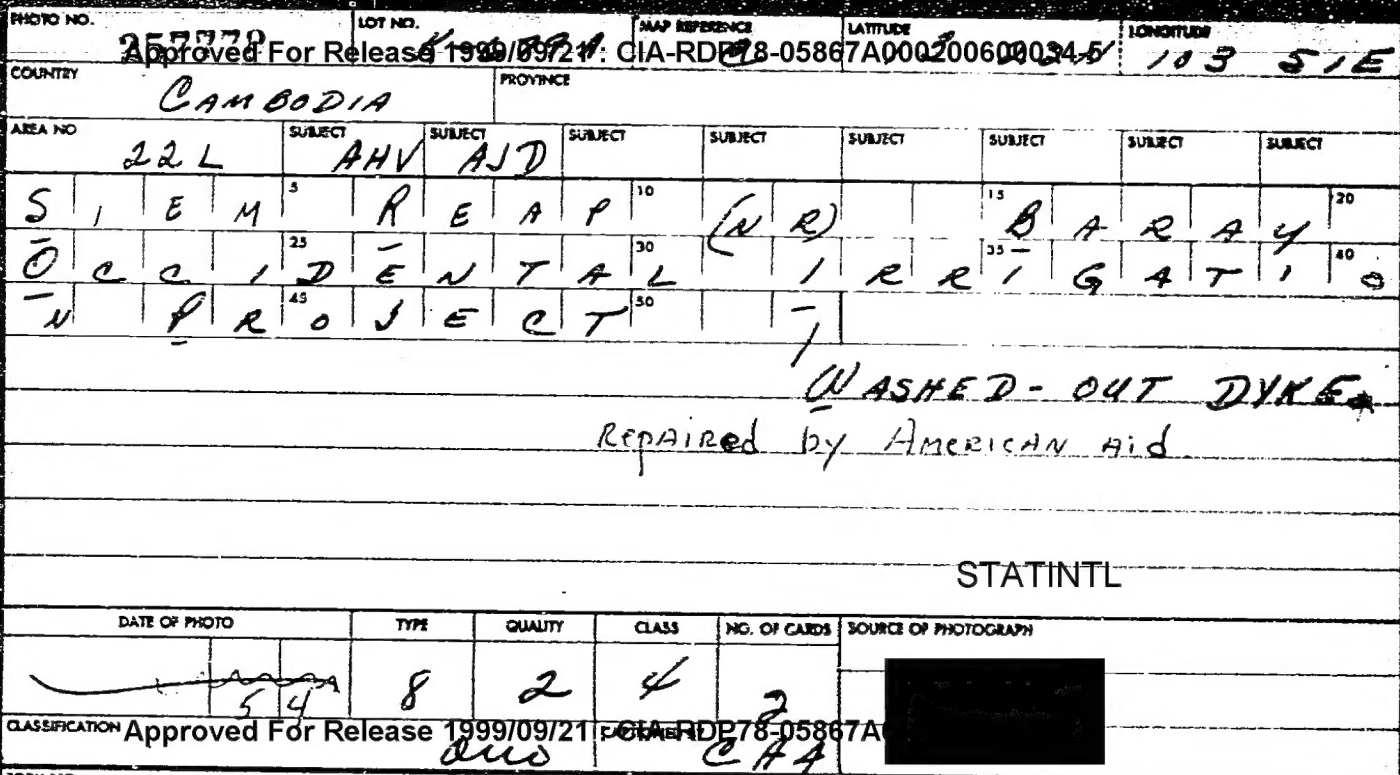 PHOTO NO. LOT NO. MAP REFERENCE LATITUDE LONGITUDE
257778 103 51E
Approved For Release 1999/09/21 : CIA-RDP78-05867A000200600034-5
COUNTRY PROVINCE
CAMBODIA
AREA NO SUBJECT SUBJECT SUBJECT SUBJECT SUBJECT SUBJECT SUBJECT SUBJECT
22L AHV AJD
5 10 15 20
SIEM REAP (NR) BARAY
25 30 35 40
OCCIDENTAL IRRIGATIO
45 50
N PROJECT
WASHED-OUT DYKE
Repaired by American Aid
STATINTL
DATE OF PHOTO TYPE QUALITY CLASS NO. OF CARDS SOURCE OF PHOTOGRAPH
54 8 2 4 2
CLASSIFICATION
Approved For Release 1999/09/21 : CIA-RDP78-05867A0
CAA